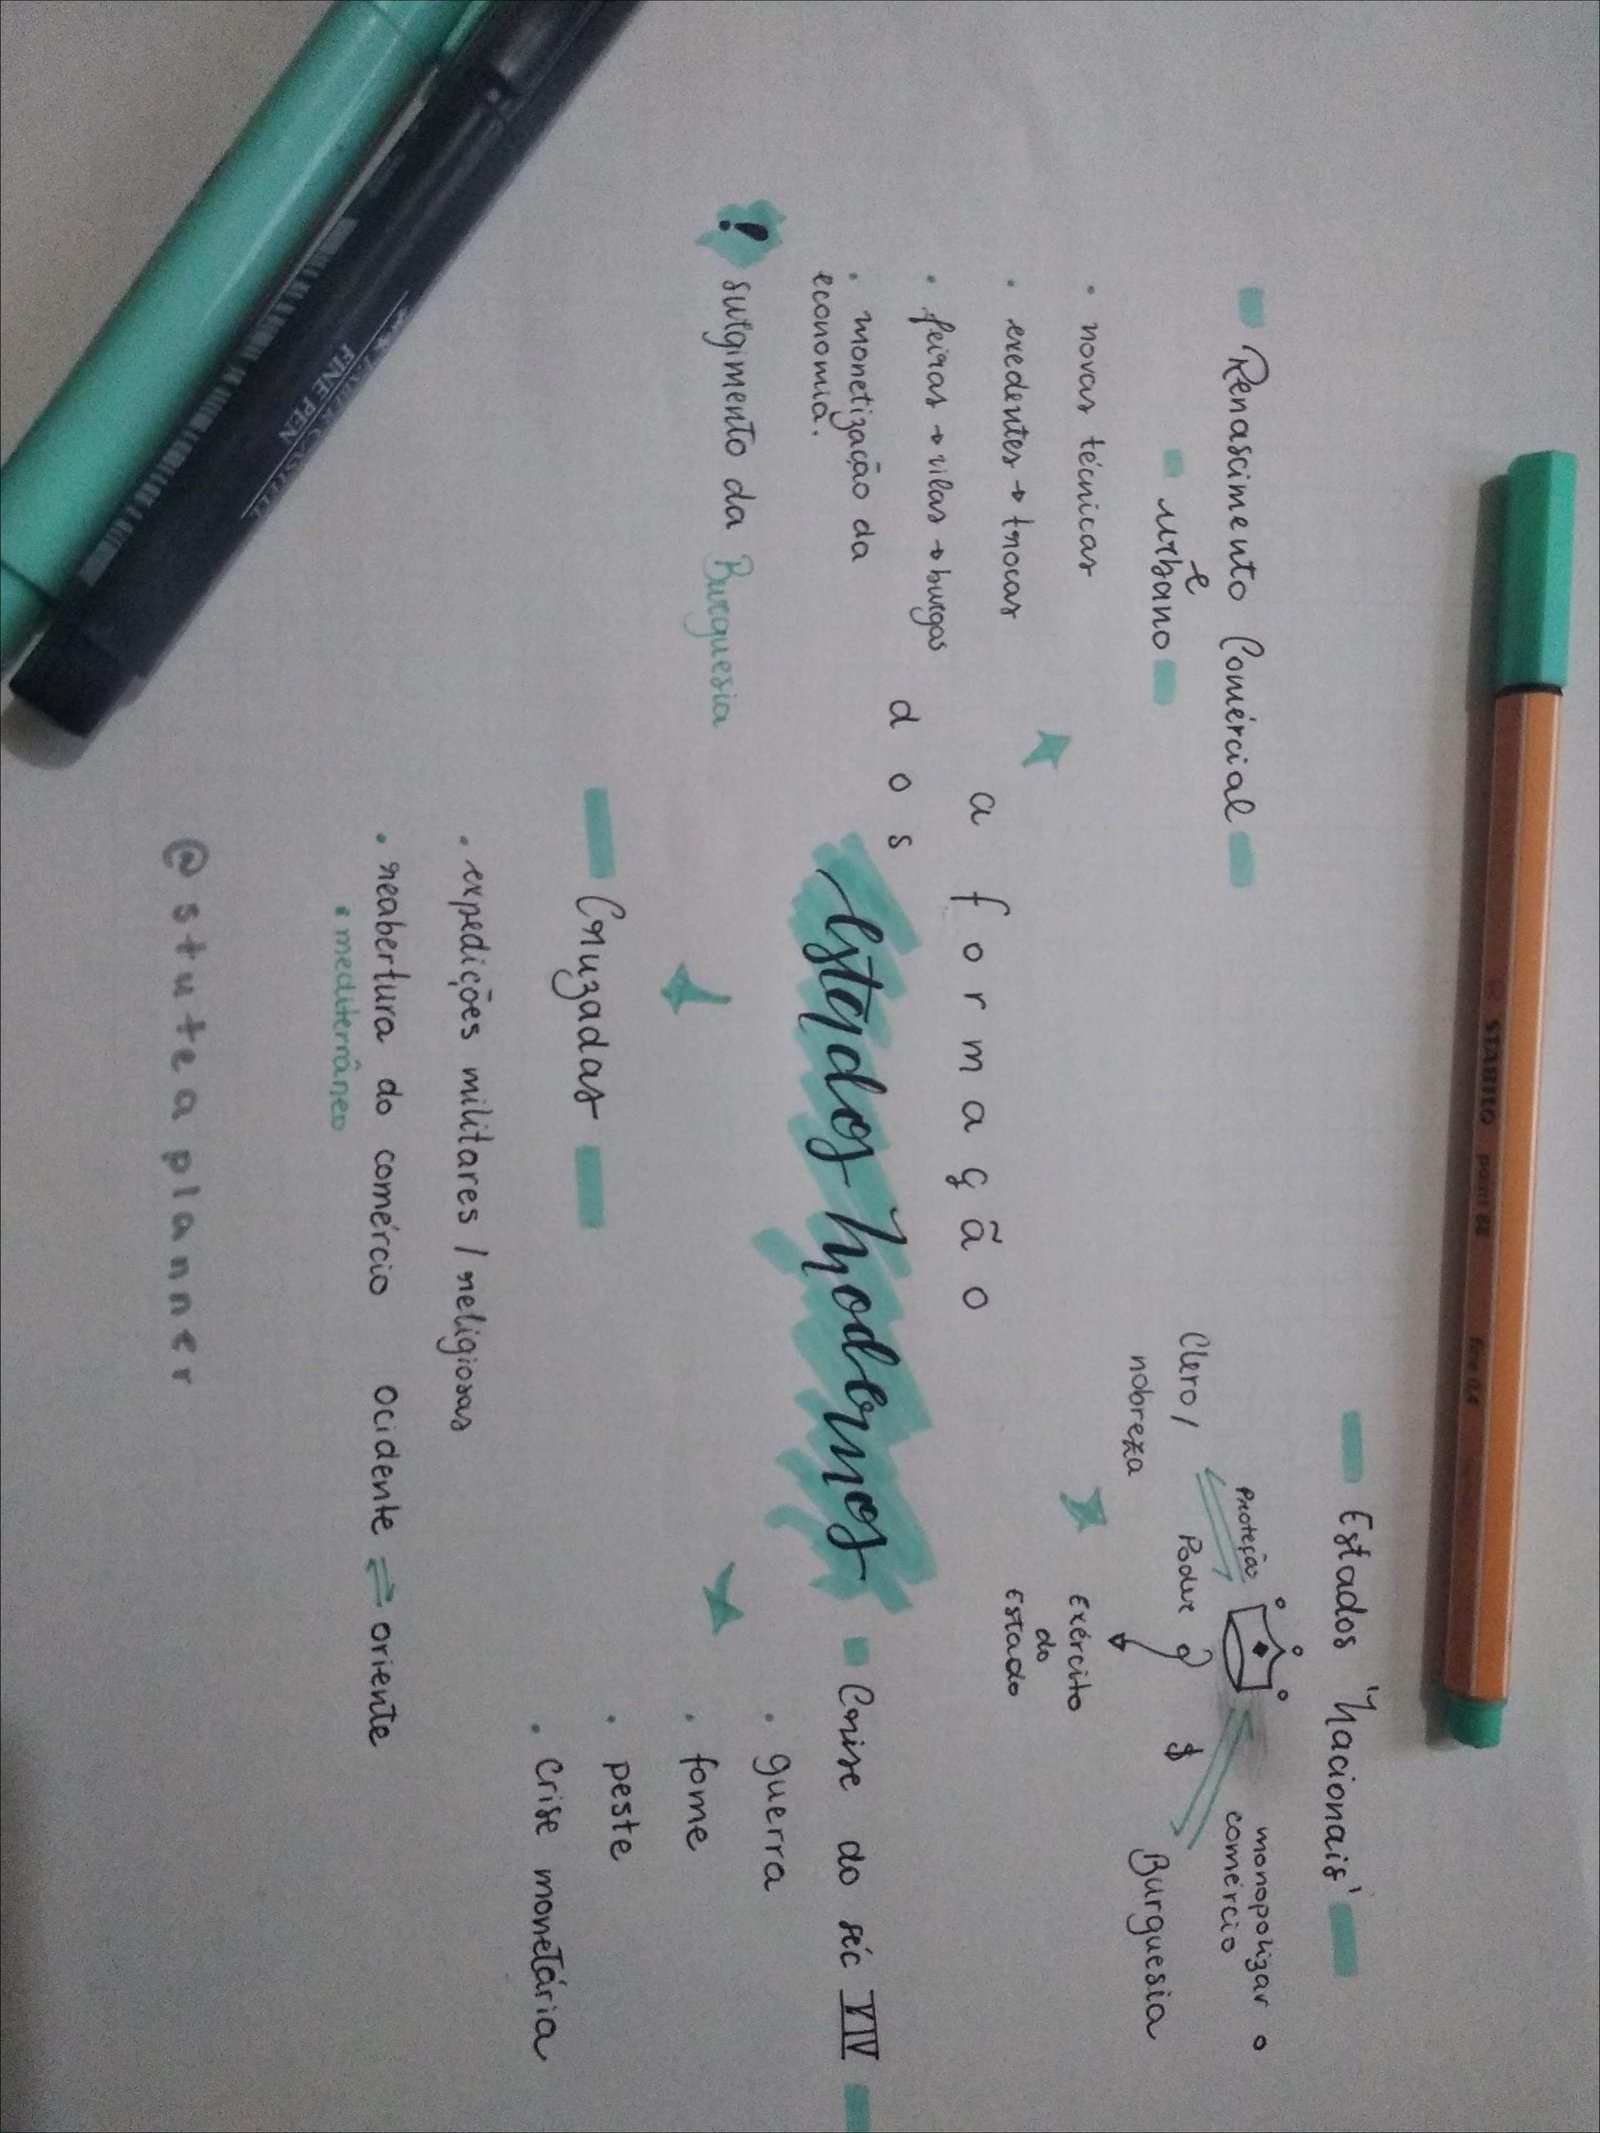 Renascimento Comércial
e
urbano
· novas técnicas
· exedentes → trocas
· feiras → vilas → burgos
· monetização da
economia.
! surgimento da Burguesia
a formação
dos
Estados Modernos
Estados 'Nacionais'
Clero/
nobreza
Proteção
Poder
$
monopolizar o
comércio
Burguesia
Exército
do
Estado
Crise do séc XIV
· guerra
· fome
· peste
· crise monetária
Cruzadas
· expedições militares / religiosas
· reabertura do comércio ocidente ⇌ oriente
· mediterrâneo
@stuteaplanner
STABILO point 88 fine 0.4
FABER-CASTELL
FINE PEN